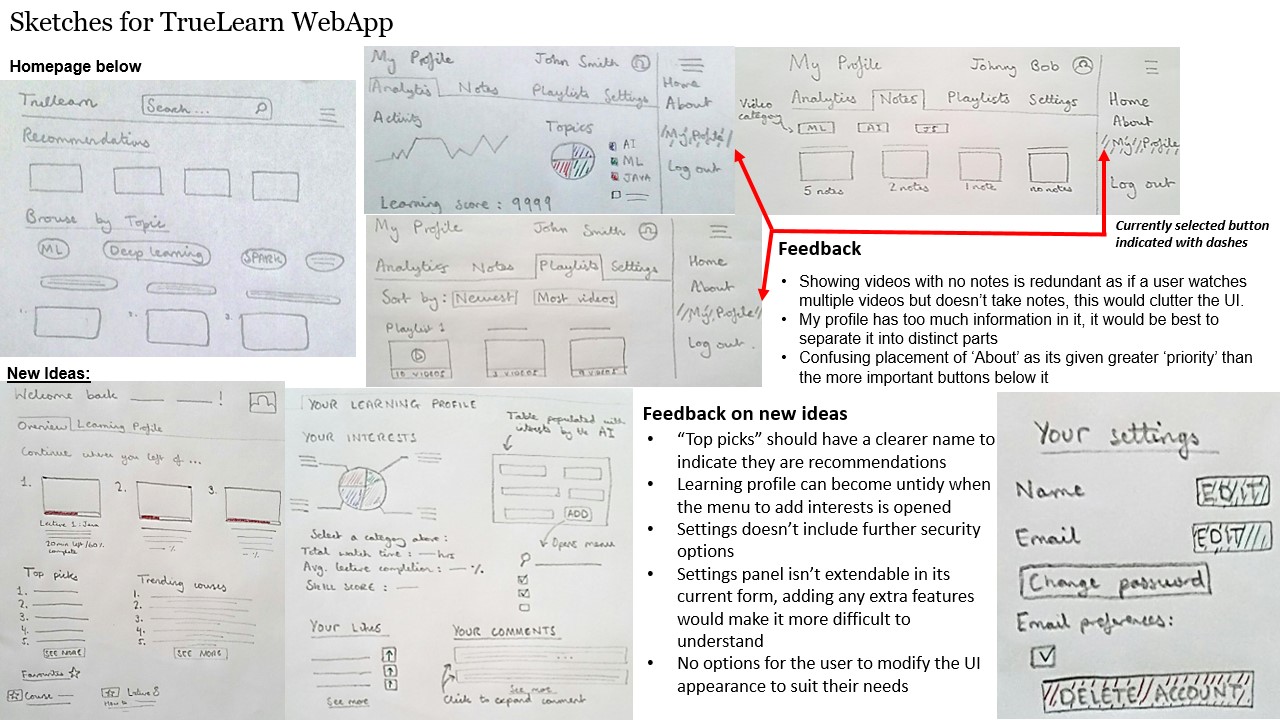 Sketches for TrueLearn WebApp
Homepage below
Truelearn
Search...
Recommendations
Browse by Topic
ML
Deep learning
SPARK
1.
2.
3.
My Profile
John Smith
Analytics
Notes
Playlists
Settings
Activity
Topics
AI
ML
JAVA
Learning score : 9999
Home
About
My Profile
Log out
My Profile
Johnny Bob
Analytics
Notes
Playlists
Settings
Video
category
ML
AI
JS
5 notes
2 notes
1 note
no notes
Home
About
My Profile
Log out
My Profile
John Smith
Analytics
Notes
Playlists
Settings
Sort by:
Newest
Most videos
Playlist 1
10 VIDEOS
3 VIDEOS
9 VIDEOS
Home
About
My Profile
Log out.
Currently selected button
indicated with dashes
Feedback
• Showing videos with no notes is redundant as if a user watches
multiple videos but doesn’t take notes, this would clutter the UI.
• My profile has too much information in it, it would be best to
separate it into distinct parts
• Confusing placement of ‘About’ as its given greater ‘priority’ than
the more important buttons below it
New Ideas:
Welcome back !
Overview
Learning Profile
Continue where you left of ...
1.
2.
3.
Lecture 1 : Java
20 min left / 60%
complete
- %
- %
Top picks
1.
2.
3.
4.
5.
SEE MORE
Trending courses
1.
2.
3.
4.
5.
SEE MORE
Favourites
Course
Lecture 8
How to
YOUR LEARNING PROFILE
YOUR INTERESTS
Table populated with
interests by the AI
ADD
Opens menu
Select a category above :
Total watch time : hrs
Avg. lective completion : %
SKILL SCORE :
YOUR LIKES
See more
YOUR COMMENTS
...
See more
Click to expand comment
Feedback on new ideas
• “Top picks” should have a clearer name to
indicate they are recommendations
• Learning profile can become untidy when
the menu to add interests is opened
• Settings doesn’t include further security
options
• Settings panel isn’t extendable in its
current form, adding any extra features
would make it more difficult to
understand
• No options for the user to modify the UI
appearance to suit their needs
Your settings
Name
EDIT
Email
EDIT
Change password
Email preferences:
DELETE ACCOUNT